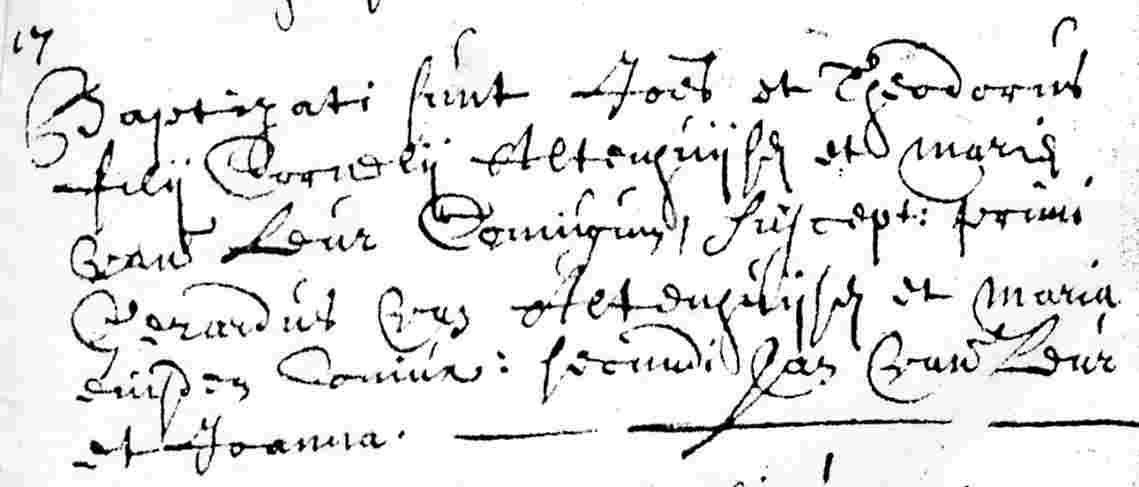 17
Baptizati sunt Joes et Theodorus
filij Cornelij Altenhuijsen et Mariae
van Leur Coniugum, suscept: primi
Gerardus van Altenhuijsen et Maria
eiusdem Coniux: secundi Jan van Leur
et Joanna.